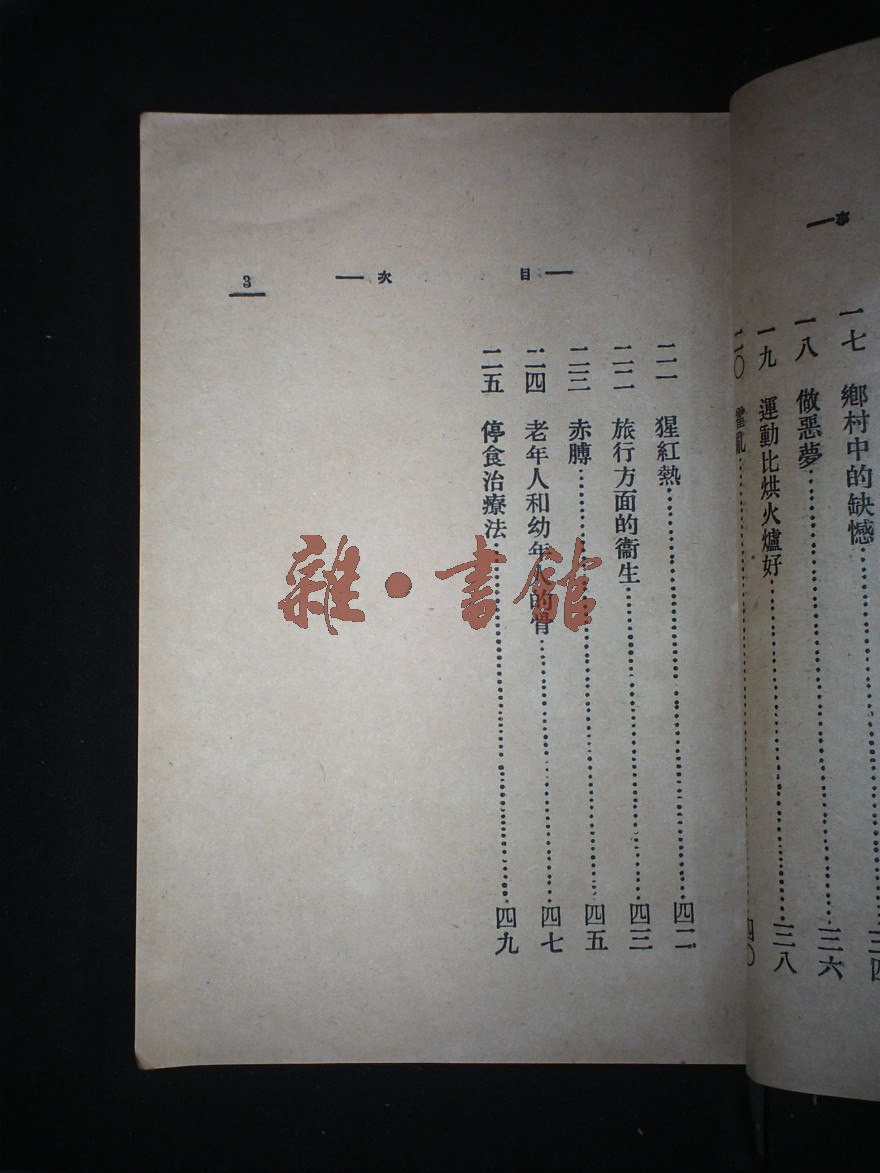 事
一七 鄉村中的缺憾 三四
一八 做惡夢 三六
一九 運動比烘火爐好 三八
二〇 霍亂 四〇
目次 3
二一 猩紅熱 四二
二二 旅行方面的衞生 四三
二三 赤膊 四五
二四 老年人和幼年人的骨 四七
二五 停食治療法 四九
雜·書館